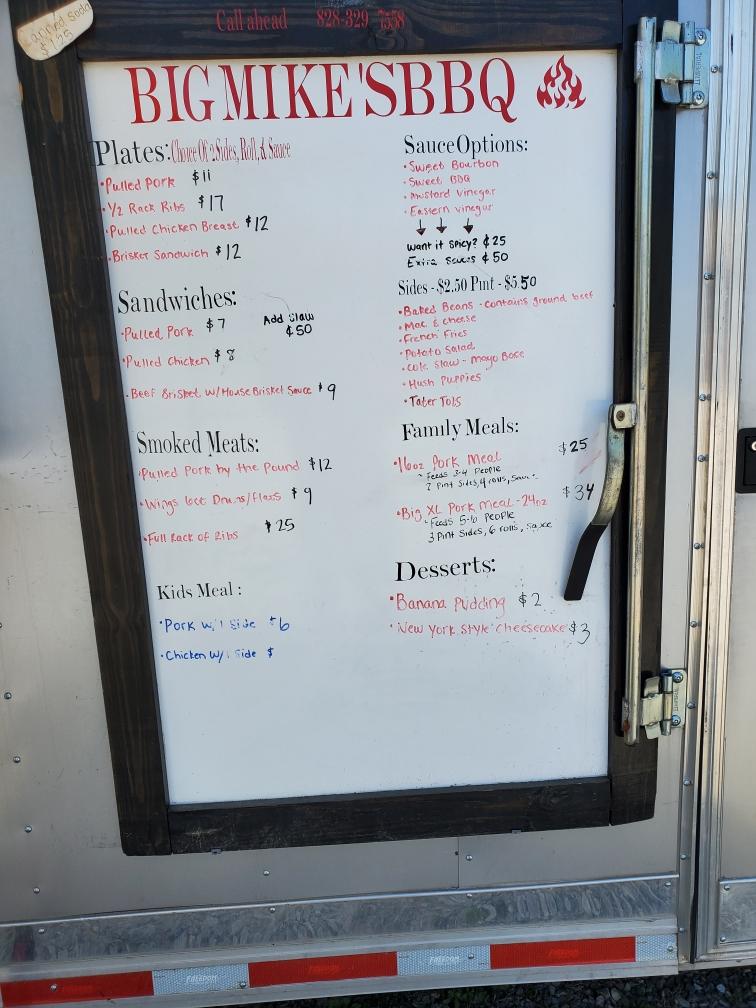 Canned Soda
$1.25
Call ahead 828-329-7558
BIG MIKE'S BBQ
Plates: Choice Of 2 Sides, Roll, & Sauce
•Pulled Pork $11
•1/2 Rack Ribs $17
•Pulled Chicken Breast $12
•Brisket Sandwich $12
Sandwiches:
•Pulled Pork $7
Add Slaw
$50
•Pulled Chicken $8
•Beef Brisket W/House Brisket Sauce $9
Smoked Meats:
•Pulled Pork by the Pound $12
•Wings 6ct Drums/Flats $9
•Full Rack of Ribs $25
Kids Meal:
•Pork w/1 Side $6
•Chicken w/1 Side $
Sauce Options:
•Sweet Bourbon
•Sweet BBQ
•Mustard Vinegar
•Eastern Vinegar
↓ ↓ ↓
Want it Spicy? ¢25
Extra Sauces ¢50
Sides - $2.50 Pint - $5.50
•Baked Beans - contains ground beef
•Mac & Cheese
•French Fries
•Potato Salad
•Cole Slaw - Mayo Base
•Hush Puppies
•Tater Tots
Family Meals:
•16oz Pork Meal $25
- Feeds 3-4 People
2 Pint Sides, 4 rolls, Sauce
•Big XL Pork Meal - 24oz $34
- Feeds 5-6 People
3 Pint Sides, 6 rolls, Sauce
Desserts:
•Banana Pudding $2
•New York Style Cheesecake $3